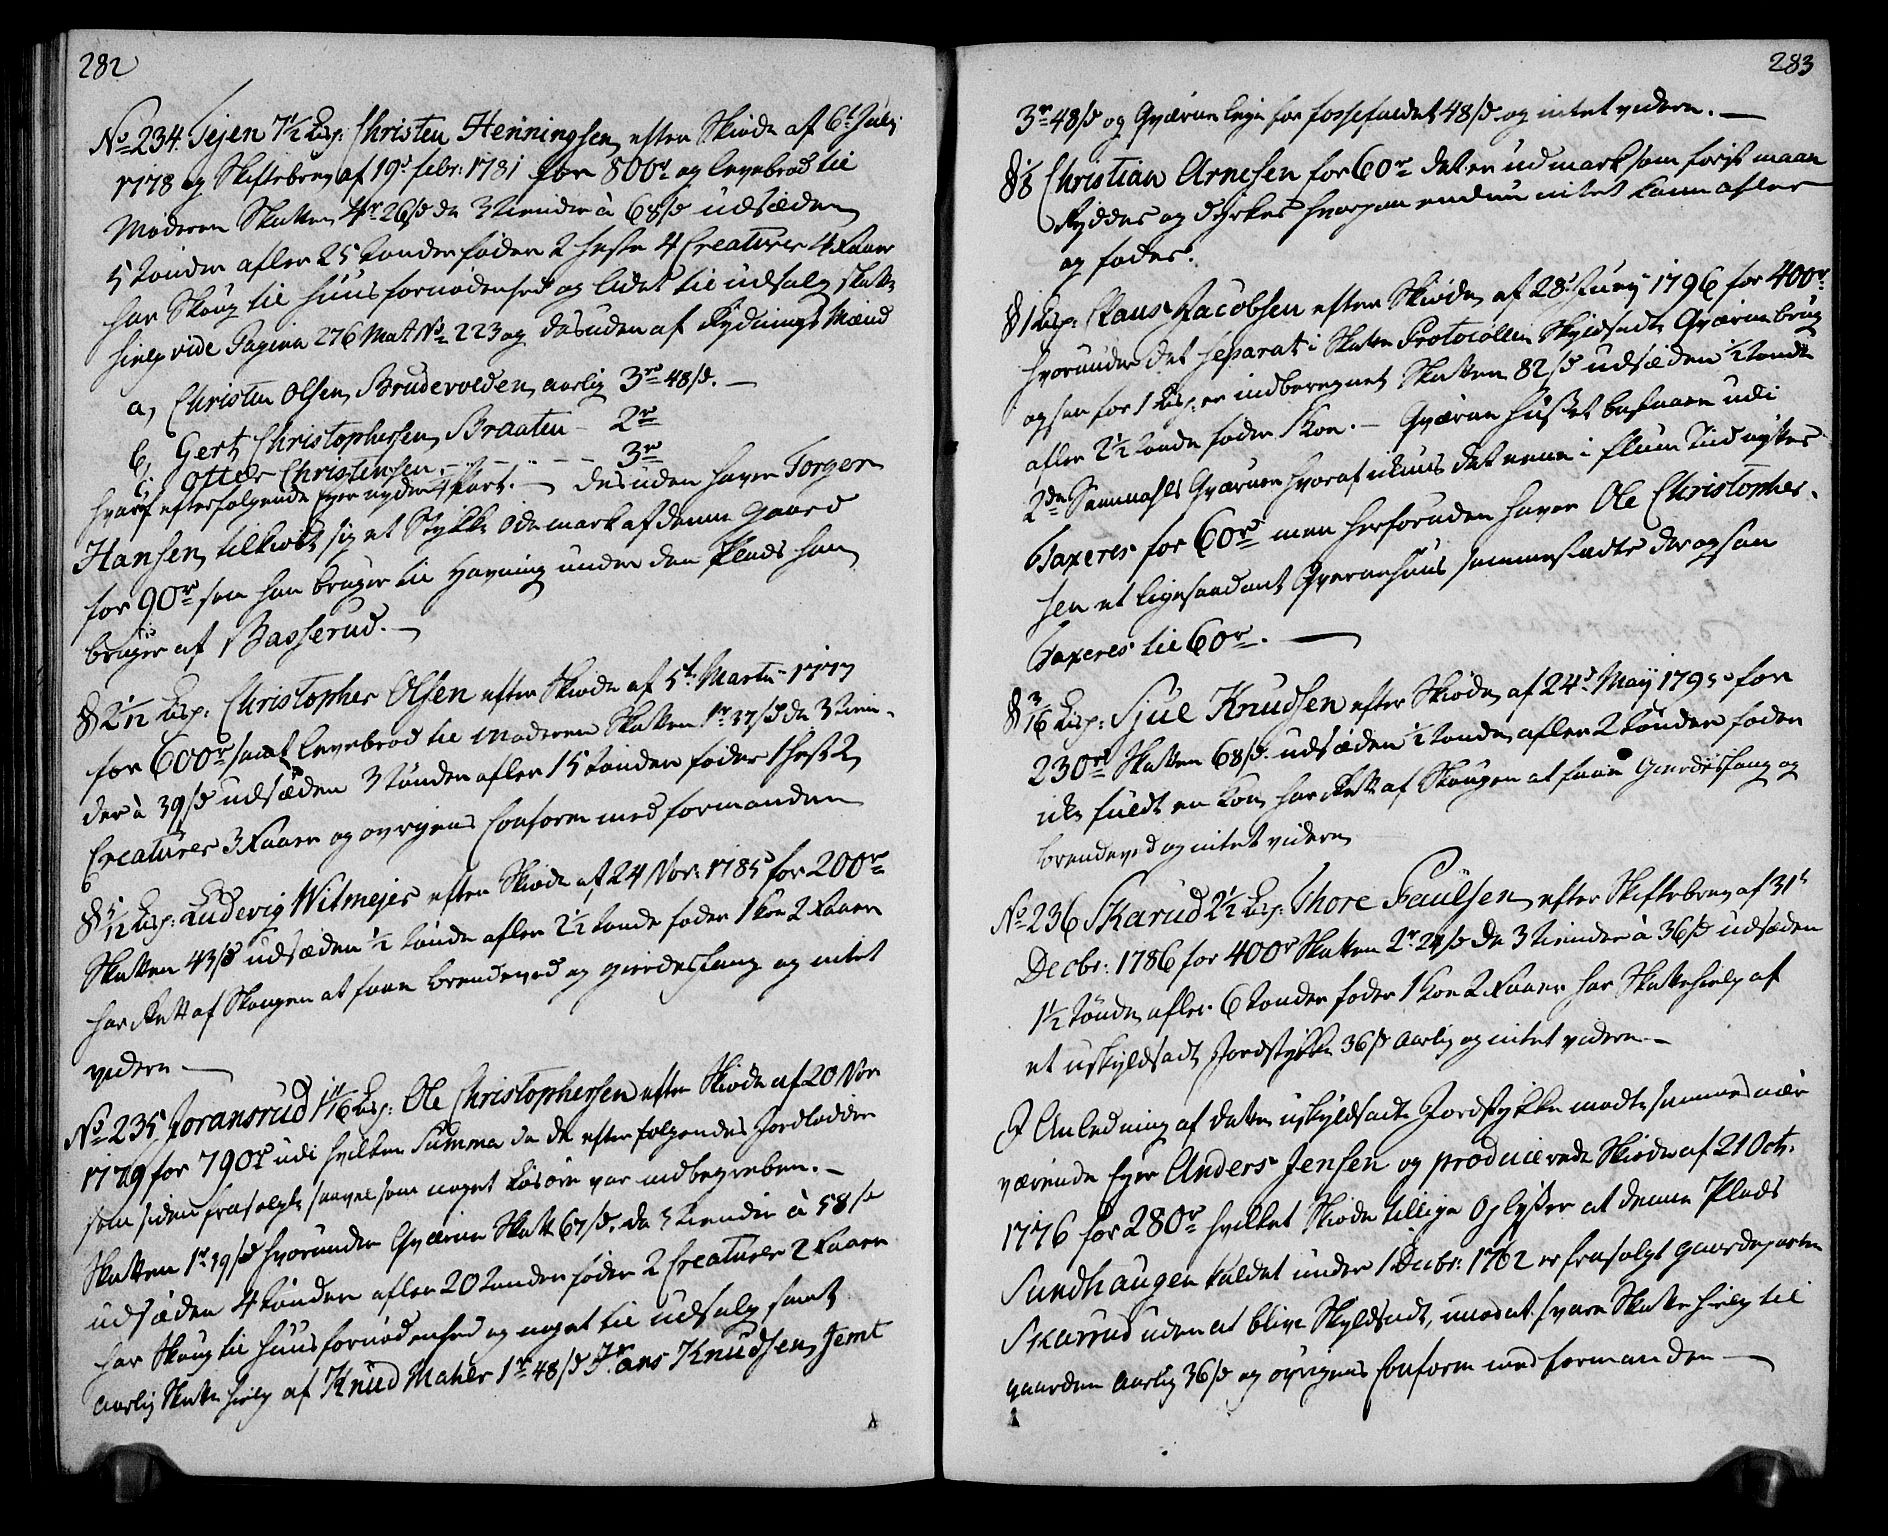 282
No 234. Tejen 7½ Lisp: Christen Henningsen, efter Skiøde af 6t July
1778 og Skiftebrev af 19d febr: 1781 for 800r og levebrød til
Moderen Skatten 4r 26/s de 3 Tiender à 68/s udsæden
5 tønder afler 25 tønder føder 2 heste 4 Creaturer 4 Faar
har Skoug til huusfornødenhed og lidet til udsalg, skatte
hielp vide Pagina 276 Mat No 223 og desuden af Rydnings Mænd
a, Christen Olsen Brudevolden, aarlig 3r 48/s. —
b, Gertz Christophersen, Braaten - 2r
c. Otter Christensen. - - - - - 3r
hvaraf efterfølgende Eyer nyder ¼ Part. — desuden haver Torger
Hansen, tilkiøbt sig et Stykke Ødemark af denne gaard
for 90r som han bruger til Havning under den Plads han
bruger af Basserud. —
§ 2 1/12 Lisp: Christopher Olsen efter Skiøde af 5t Martii 1777
for 600r samt levebrød til Moderen Skatten 1r 37/s de 3 Tien-
der à 39/s udsæden 3 tønder afler 15 tønder føder 1 hest 2
Creaturer 3 Faar og øvrigens Conform med formanden
§ 5/12 Lisp: Ludevig Witmejer efter Skiøde af 24 Nov: 1785 for 200r
Skatten 43/s udsæden ½ tønde afler 2½ tønde føder 1 Koe 2 Faar
har Rett af Skougen at faae brendeved og gierdesfang og intet
videre —
No 235 Joransrud 1 1/16 Lisp: Ole Christophersen efter Skiøde af 20 Nov
1779 for 790r udi hvilken Summa da de efterfølgendes Jordlodder
som siden frasolgte saavel som noget Løsøre var indbegreben. —
Skatten 1r 39/s hvorunder Qværne Skatt 67/s, de 3 Tiender à 58/s
udsæden 4 tønder afler 20 tønder føder 2 Creaturer 2 Faar
har Skoug til huusfornødenhed og noget til udsalg samt
aarlig Skatte hielp af Knud Mahler 1r 48/s Jr ans Knudsen, Jemt
283
3r 48/s og Qværneleye for fossefaldet 48/s og intet videre. —
§ 1/8 Christian Arnesen for 60r det er udmark som først maae
Ryddes og dyrkes hvorpaa endnu intet kann afles
og fødes.
§ 1 Lisp: Claus Jacobsen efter Skiøde af 28d Juny 1796 for 400r
hvorunder det separat i Skatte Protocollen Skyldsadte Qværnebrug
ogsaa for 1 Lisp: er indberegnet Skatten 82/s udsæden ½ tønde
afler 2½ tønde føder 1 Koe. — Qværne huset bestaaer udi
2de Sammahls Qværner hvoraf ikkuns det eene i flum Tiid nyttes
Taxeres for 60r men herforuden haver Ole Christopher-
sen et ligesaadant Qvernehuus sammestæds der ogsaa
Taxeres til 60r. —
§ 3/16 Lisp: Sjul Knudsen efter Skiøde af 24d May 1795 for
230r Skatten 68/s. udsæden ½ tønde, afler 2 tønder føder
ikke fuldt en Koe, har Rett af Skougen at faae Gierdesfang og
brendeved og intet videre
No 236 Skarud 2½ Lisp: Thore Paulsen, efter Skiftebrev af 31t
Decbr: 1786 for 400r Skatten 2r 24/s de 3 Tiender à 36/s udsæden
1½ tønde, afler 6 tønder føder 1 Koe 2 Faar har Skattehielp af
et uskyldsadt Jordstykke 36/s aarlig og intet videre —
I Anledning af dette uskyldsadte Jordstykke mødte sammes nær
værende Eyer Anders Jensen og producerede Skiøde af 21 Octr.
1776 for 280r hvilket Skiøde tillige Oplyser at denne Plads
Sundhaugen kaldet under 1 Decbr: 1762 er frasolgt gaardeparten
Skarrud uden at blive Skyldsadt, imod at svare Skatte hielp til
gaarden aarlig 36/s og øvrigens Conform med formanden —